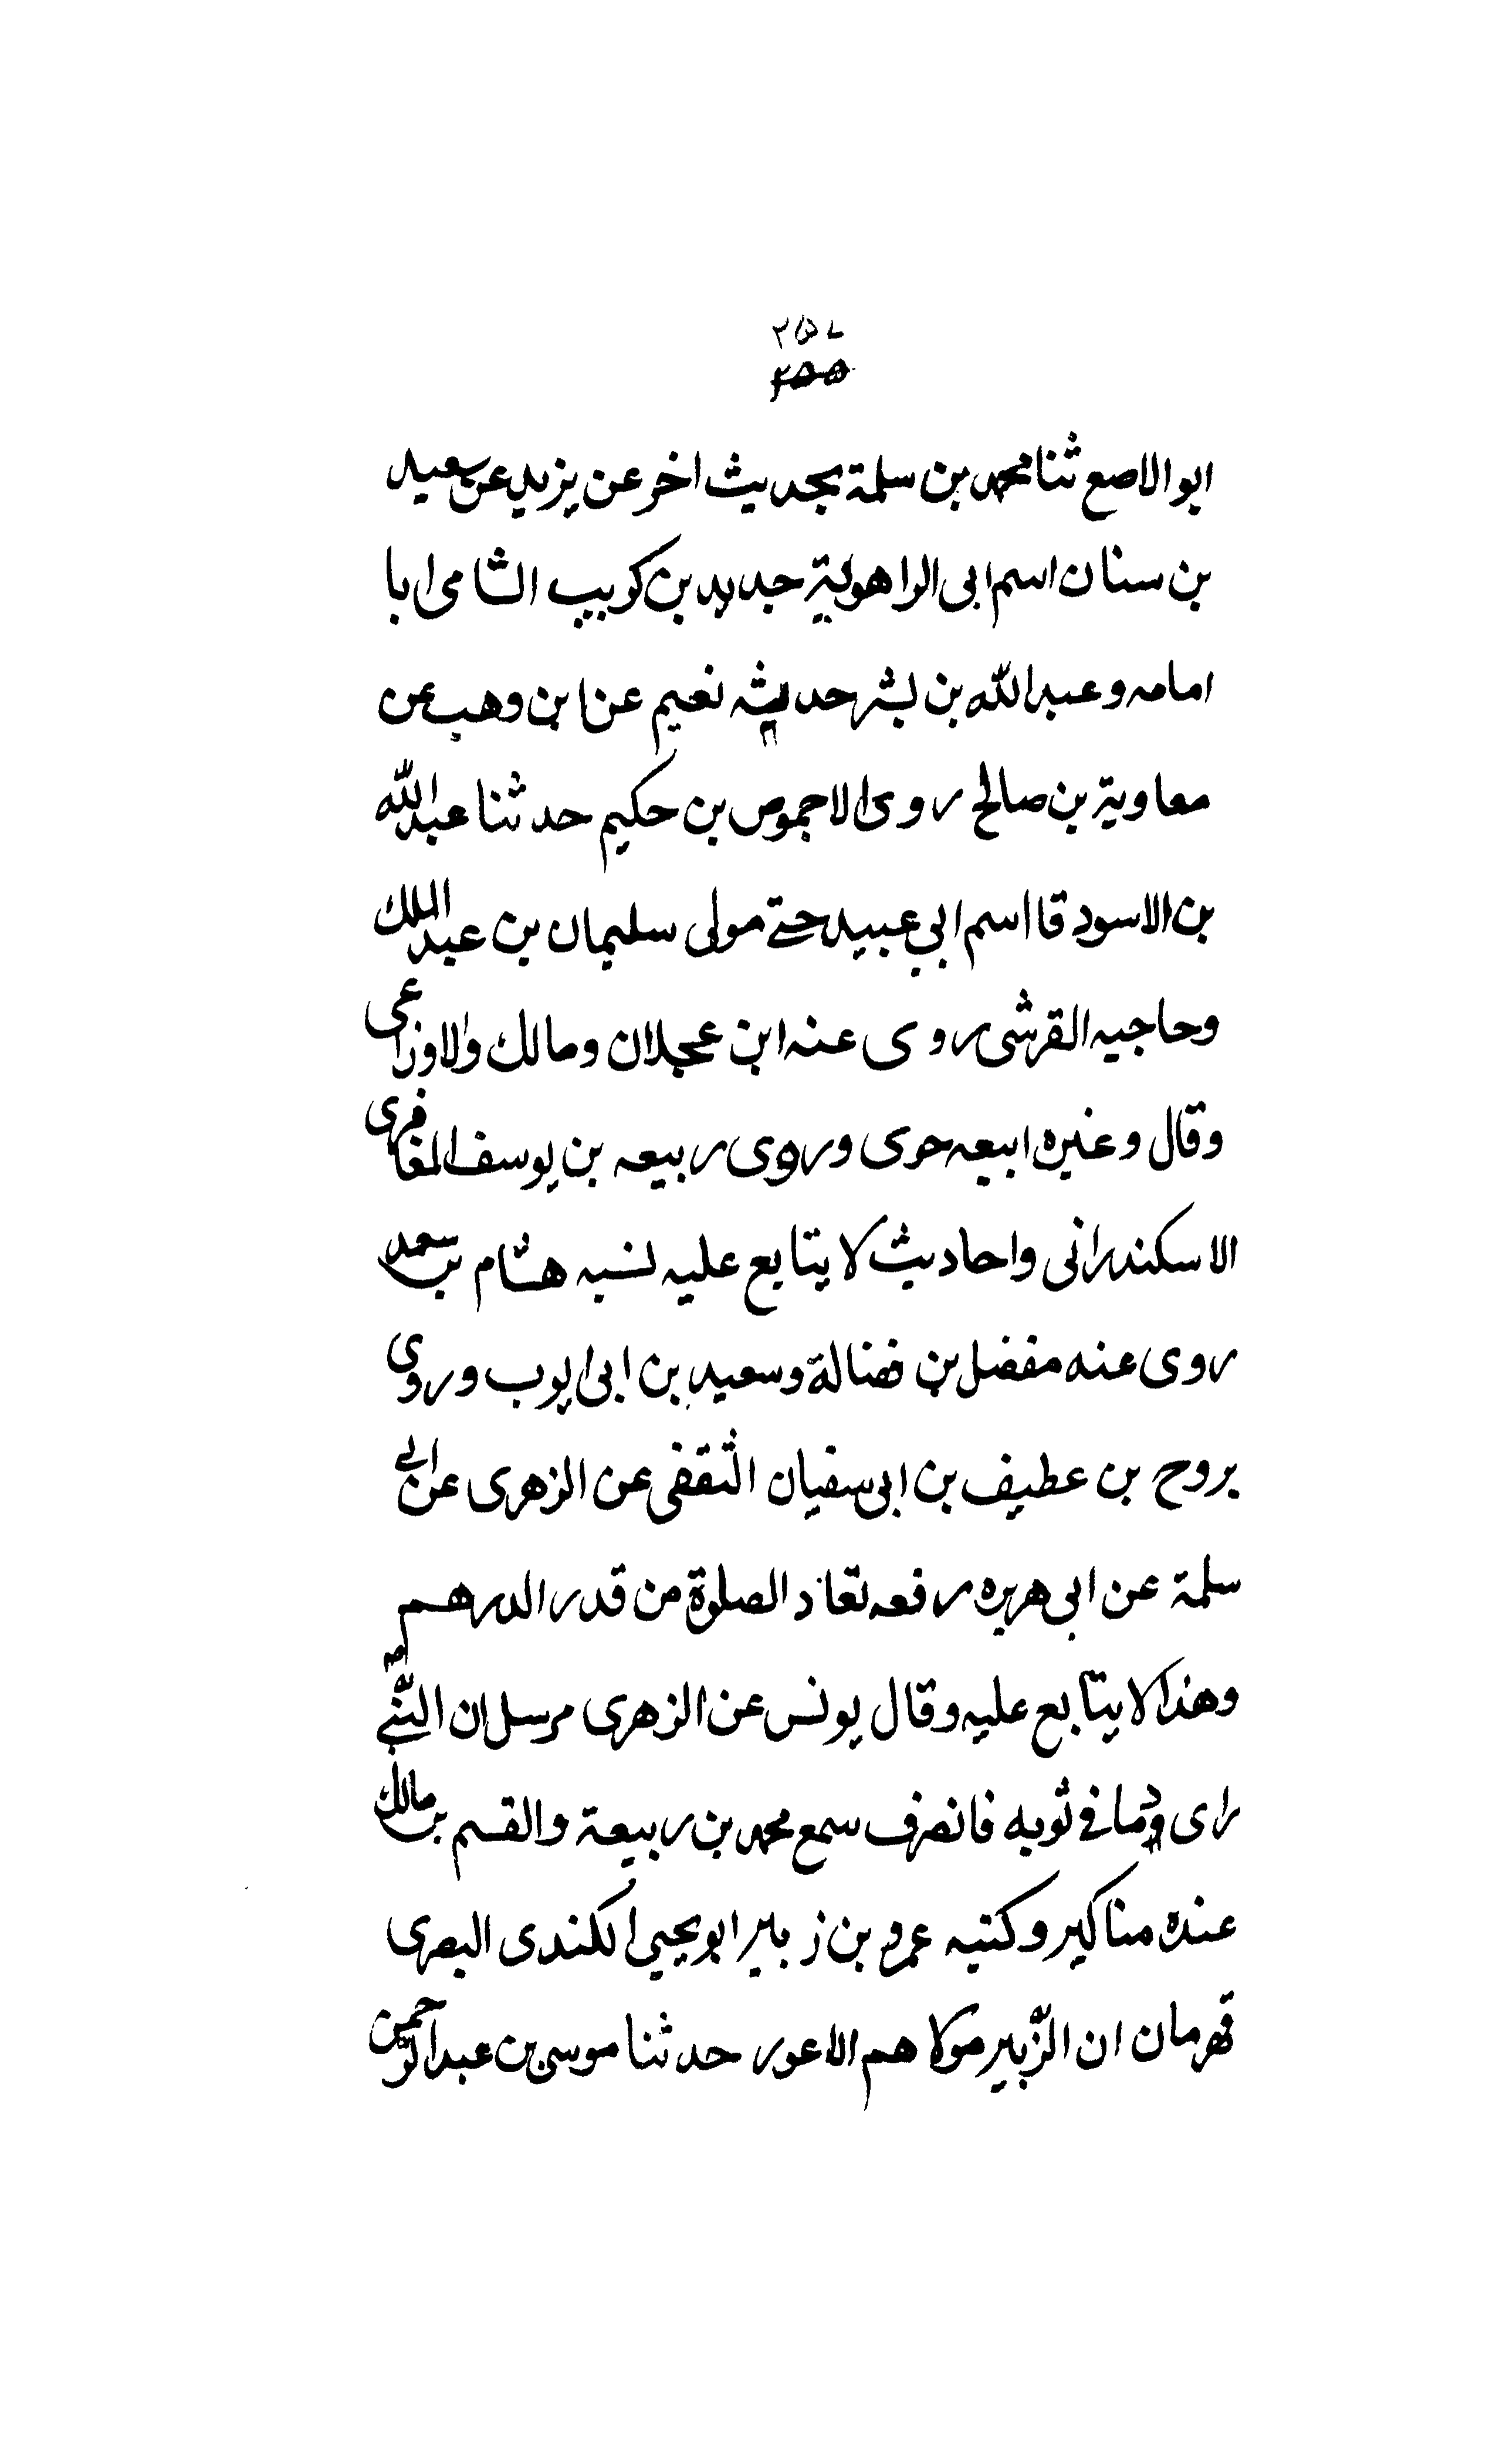 ٢٥٧
٢٥٥
ابو الاصبع ثنا محمد بن سلمة بحديث اخر عن يزيد عن سعيد
بن سنان اسم ابى الزاهوية حديد بن كريب الشامى ابا
امامه وعبد الله بن بشر حديثه نعيم عن ابن وهب عن
معاوية بن صالح روى الاحموص بن حكيم حدثنا عبد الله
بن الاسود قا اسم ابي عبيد حتے مولى سليمان بن عبد الملك
وحاجبه القرشى روى عنه ابن عجلان ومالك والاوزاعى
وقال وغيره ابيعه حوى وروى ربيعه بن يوسف المغافرى
الاسكندرانى واحاديث لا يتابع عليه نسبه هشام بن سعد
روى عنه مفضل بن فضالة وسعيد بن ابى ايوب وروى
بروح بن عطيف بن ابى سفيان الثقفى عن الزهرى عن ابى
سلمة عن ابى هريره رفعه تعاد الصلوة من قدر الدرهم
وهذا لا يتابع عليه وقال يونس عن الزهرى مرسل ان النبے ص
راى دما فى ثوبه فانصرف سمع محمد بن ربيعة والقسم بن مالك
عنده مناكير وكتبه عمرو بن زبير ابو يحيى الكندى البصرى
قهرمان ان الزبير مولاهم الاعور حدثنا موسى بن عبد الرحمن